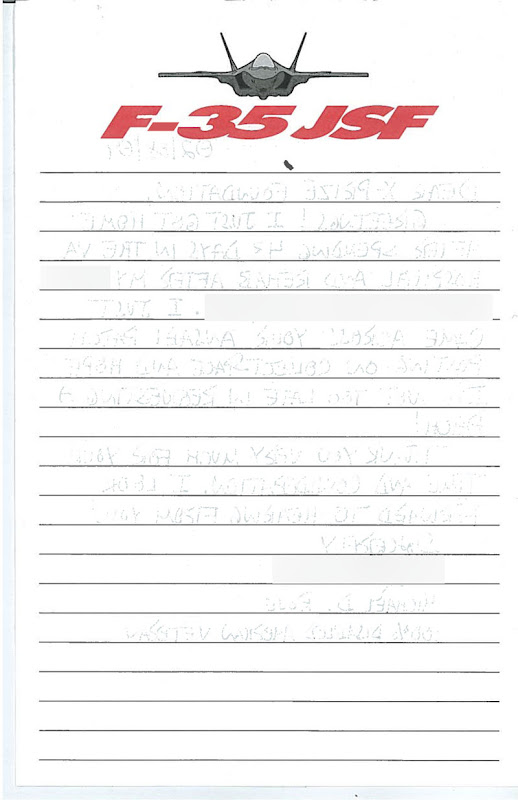 F-35 JSF
DEAR X-PRIZE FOUNDATION,
GREETINGS! I JUST GOT HOME
AFTER SPENDING DAYS IN THE VA
HOSPITAL AND REHAB AFTER MY
. I JUST
CAME ACROSS YOUR ANSARI PATCH
POSTING ON COLLECTSPACE AND HOPE
I'M NOT TOO LATE IN REQUESTING A
PATCH!
THANK YOU VERY MUCH FOR YOUR
TIME AND CONSIDERATION. I LOOK
FORWARD TO HEARING FROM YOU!
SINCERELY
MICHAEL D.
100% DISABLED AMERICAN VETERAN